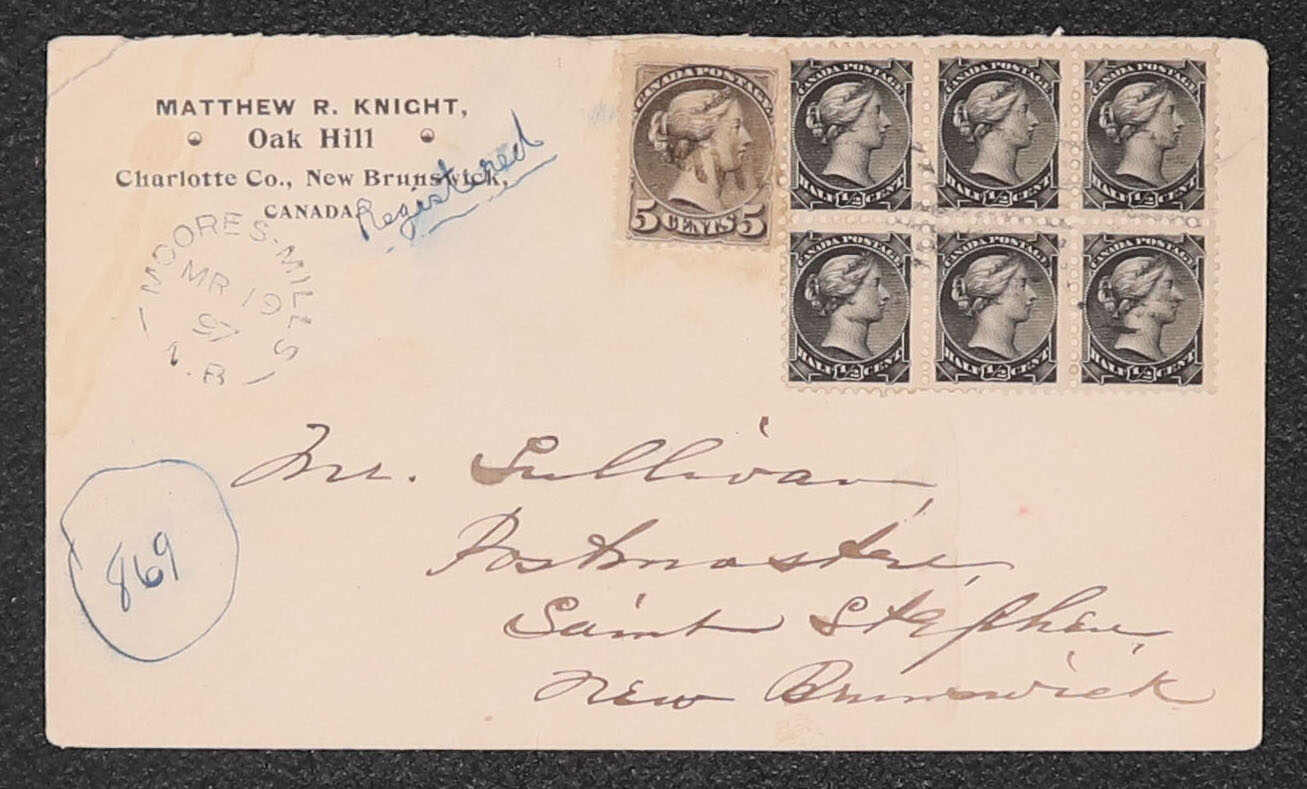 MATTHEW R. KNIGHT,
Oak Hill
Charlotte Co., New Brunswick,
CANADA
Registered
MOORES-MILLS
MR 19
97
N.B
CANADA POSTAGE
5 CENTS 5
CANADA POSTAGE
HALF 1/2 CENT
CANADA POSTAGE
HALF 1/2 CENT
CANADA POSTAGE
HALF 1/2 CENT
CANADA POSTAGE
HALF 1/2 CENT
CANADA POSTAGE
HALF 1/2 CENT
CANADA POSTAGE
HALF 1/2 CENT
869
Mr. Sullivan,
Postmaster,
Saint Stephen,
New Brunswick